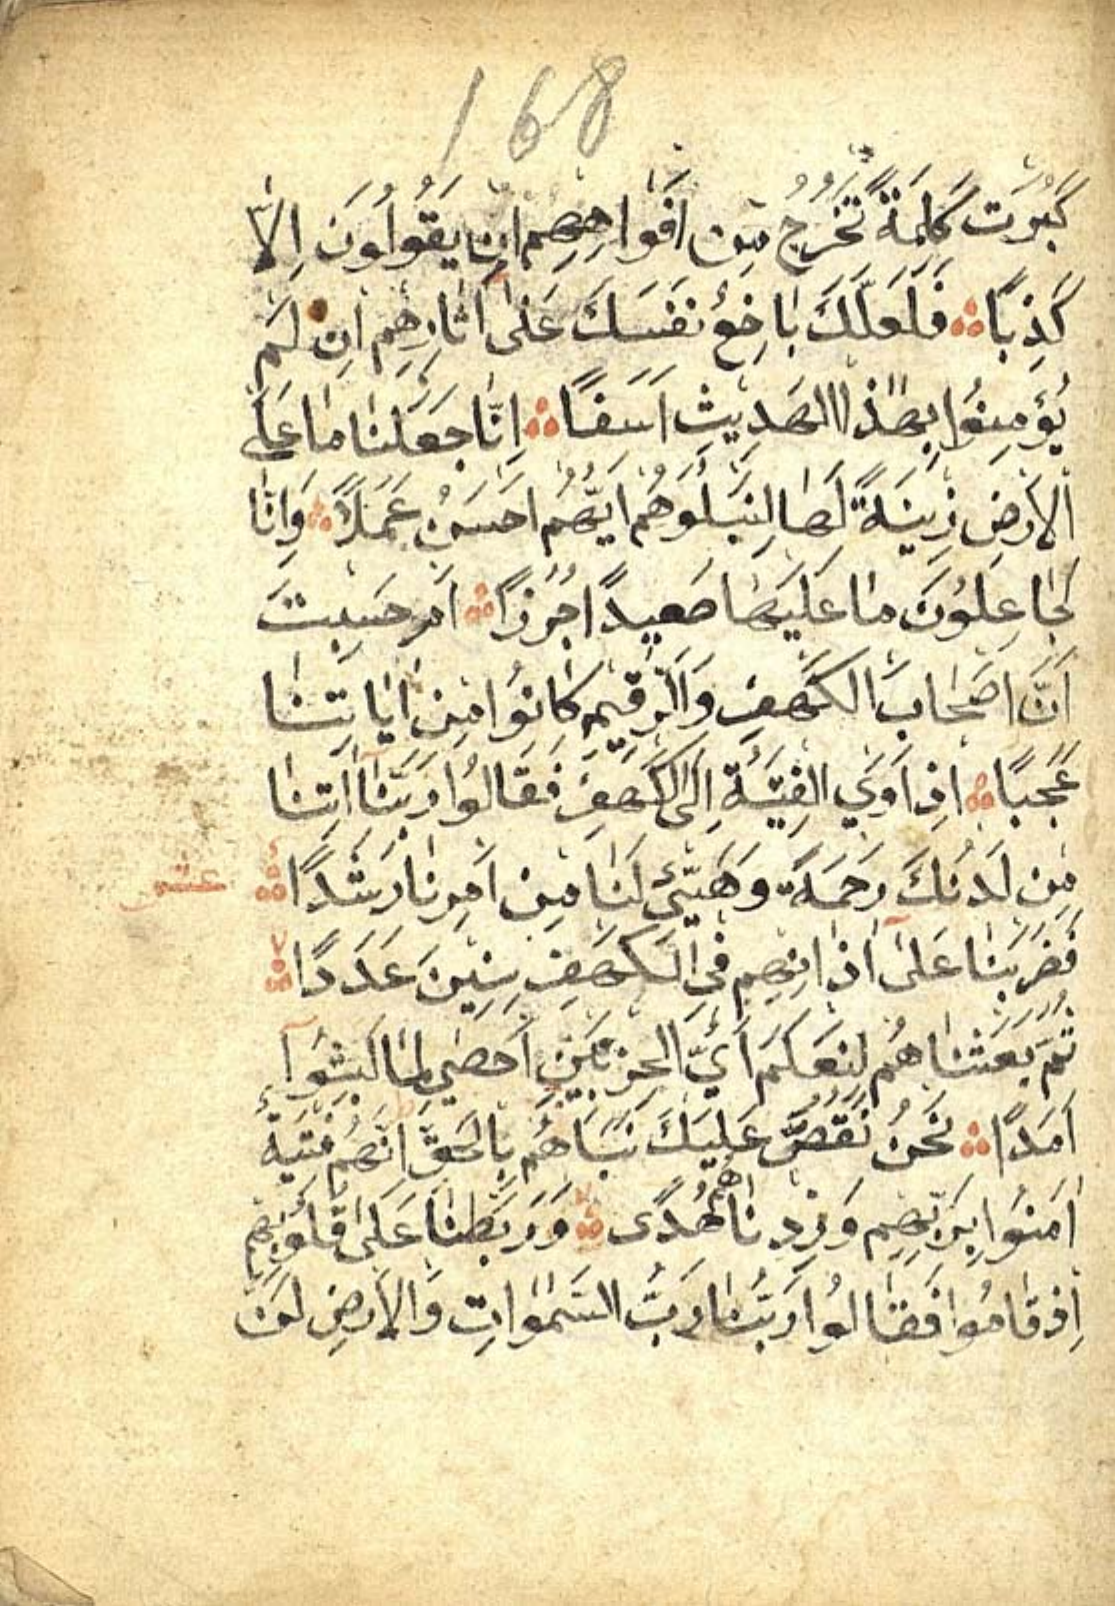 168
كَبُرَتْ كَلِمَةً تَخْرُجُ مِنْ اَفْوَاهِهِمْ اِنْ يَقُولُونَ اِلَّا
كَذِبًا ۞ فَلَعَلَّكَ بَاخِعٌ نَفْسَكَ عَلٰى اٰثَارِهِمْ اِنْ لَمْ
يُؤْمِنُوا بِهٰذَا الْحَدِيثِ اَسَفًا ۞ اِنَّا جَعَلْنَا مَا عَلَى
الْاَرْضِ زِينَةً لَهَا لِنَبْلُوَهُمْ اَيُّهُمْ اَحْسَنُ عَمَلًا ۞ وَاِنَّا
لَجَاعِلُونَ مَا عَلَيْهَا صَعِيدًا جُرُزًا ۞ اَمْ حَسِبْتَ
اَنَّ اَصْحَابَ الْكَهْفِ وَالرَّقِيمِ كَانُوا مِنْ اٰيَاتِنَا
عَجَبًا ۞ اِذْ اَوَي الْفِتْيَةُ اِلَى الْكَهْفِ فَقَالُوا رَبَّنَا اٰتِنَا
مِنْ لَدُنْكَ رَحْمَةً وَهَيِّئْ لَنَا مِنْ اَمْرِنَا رَشَدًا ۞ عشر
فَضَرَبْنَا عَلٰى اٰذَانِهِمْ فِي الْكَهْفِ سِنِينَ عَدَدًا ۞
ثُمَّ بَعَثْنَاهُمْ لِنَعْلَمَ اَيُّ الْحِزْبَيْنِ اَحْصٰى لِمَا لَبِثُوا
اَمَدًا ۞ نَحْنُ نَقُصُّ عَلَيْكَ نَبَاَهُمْ بِالْحَقِّ اِنَّهُمْ فِتْيَةٌ
اٰمَنُوا بِرَبِّهِمْ وَزِدْنَاهُمْ هُدًى ۞ وَرَبَطْنَا عَلٰى قُلُوبِهِمْ
اِذْ قَامُوا فَقَالُوا رَبُّنَا رَبُّ السَّمٰوَاتِ وَالْاَرْضِ لَنْ